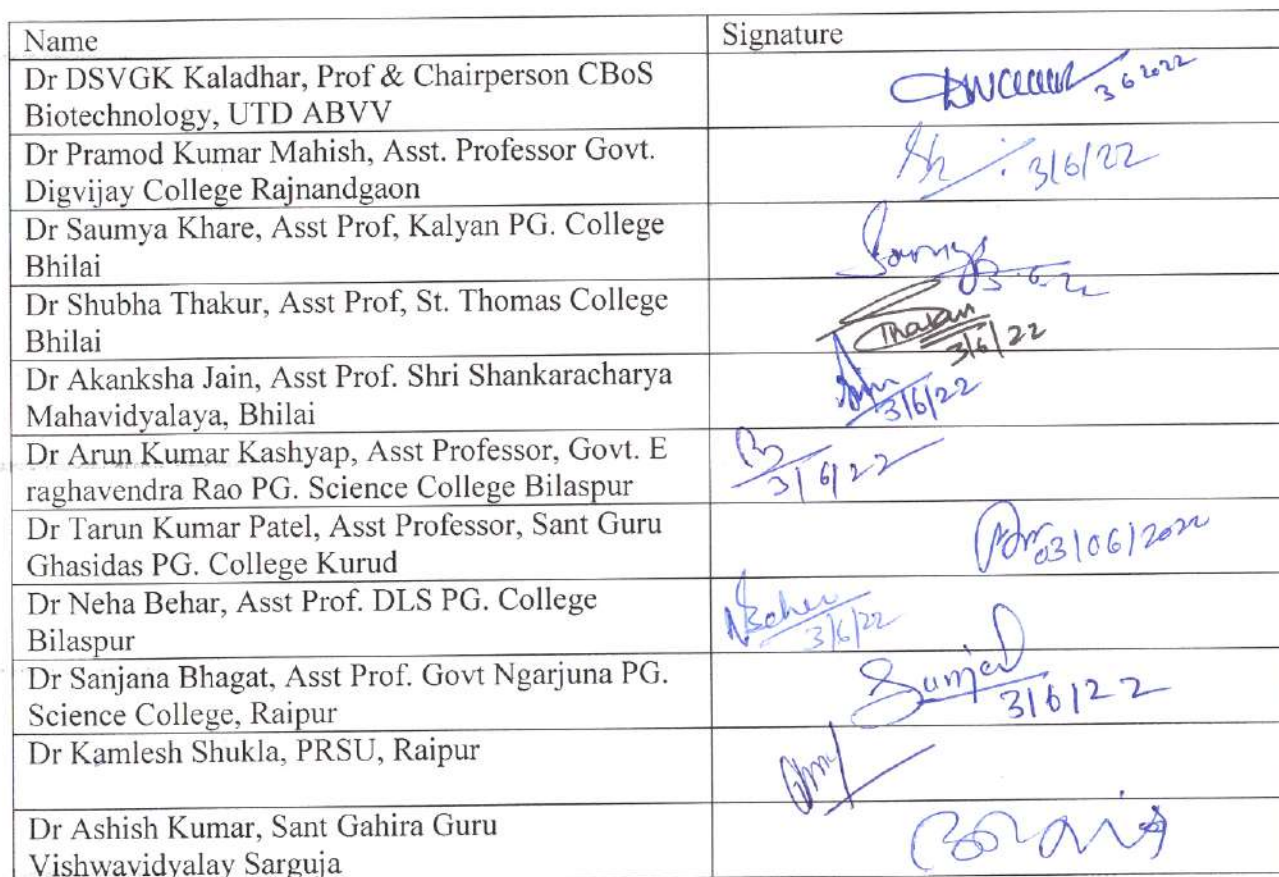 Name Signature
Dr DSVGK Kaladhar, Prof & Chairperson CBoS
Biotechnology, UTD ABVV
3 6 2022
Dr Pramod Kumar Mahish, Asst. Professor Govt.
Digvijay College Rajnandgaon
3/6/22
Dr Saumya Khare, Asst Prof, Kalyan PG. College
Bhilai
Dr Shubha Thakur, Asst Prof, St. Thomas College
Bhilai
Thakur
3/6/22
Dr Akanksha Jain, Asst Prof. Shri Shankaracharya
Mahavidyalaya, Bhilai
3/6/22
Dr Arun Kumar Kashyap, Asst Professor, Govt. E
raghavendra Rao PG. Science College Bilaspur
3/6/22
Dr Tarun Kumar Patel, Asst Professor, Sant Guru
Ghasidas PG. College Kurud
03/06/2022
Dr Neha Behar, Asst Prof. DLS PG. College
Bilaspur
3/6/22
Dr Sanjana Bhagat, Asst Prof. Govt Ngarjuna PG.
Science College, Raipur
3/6/22
Dr Kamlesh Shukla, PRSU, Raipur
Dr Ashish Kumar, Sant Gahira Guru
Vishwavidyalay Sarguja